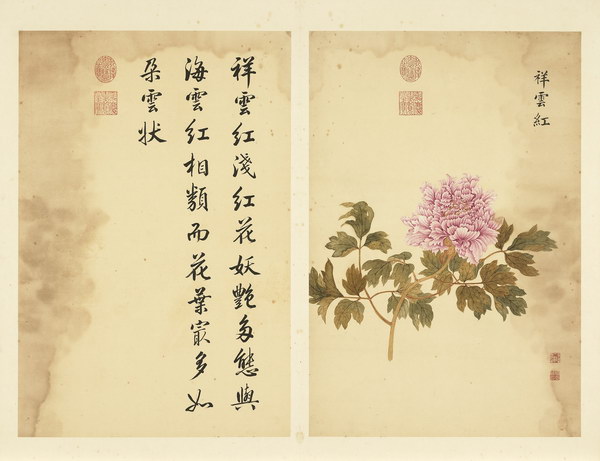 祥雲紅
祥雲紅淺紅花妖艷多態與
海雲紅相類而花葉最多如
朵雲狀